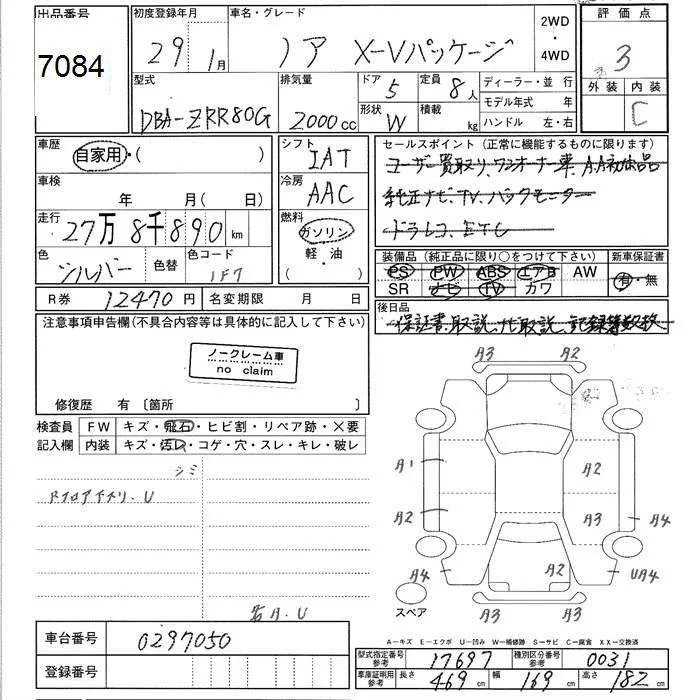 出品番号
7084
初度登録年月
29年1月
車名・グレード
ノア X-Vパッケージ
2WD
・
4WD
評価点
3
外装 内装
C
型式
DBA-ZRR80G
排気量
2000cc
ドア
5
形状
W
定員
8人
積載
kg
ディーラー・並行
モデル年式 年
ハンドル 左・右
車歴
自家用・( )
車検
年 月( 日)
走行
27万8千890km
色
シルバー
色替
色コード
1F7
シフト
IAT
冷房
AAC
燃料
ガソリン
軽油
( )
セールスポイント(正常に機能するものに限ります)
ユーザー買取り、ワンオーナー車、A.A初出品
純正ナビ、TV、バックモニター
ドラレコ、ETC
装備品(純正品に限り○をつけて下さい)
PS PW ABS エアB AW
SR ナビ TV カワ
新車保証書
有・無
R券 12470円
名変期限 月 日
後日品
保証書、取説、ナビ取説、記録簿数枚
注意事項申告欄(不具合内容等は具体的に記入して下さい)
ノークレーム車
no claim
修復歴 有〔箇所 〕
検査員
記入欄
FW キズ・飛石・ヒビ割・リペア跡・X要
内装 キズ・汚レ・コゲ・穴・スレ・キレ・破レ
シミ
A3 A2
A1 A2
A2 A3 A4
A4 A2 UA4
A3 A3
スペア
若A.U
A―キズ E―エクボ U―凹み W―補修跡 S―サビ C―腐食 XX―交換済
車台番号
0297050
登録番号
型式指定番号
参考
17697
種別区分番号
参考
0031
車庫証明用
参考
長さ 469cm 幅 169cm 高さ 182cm